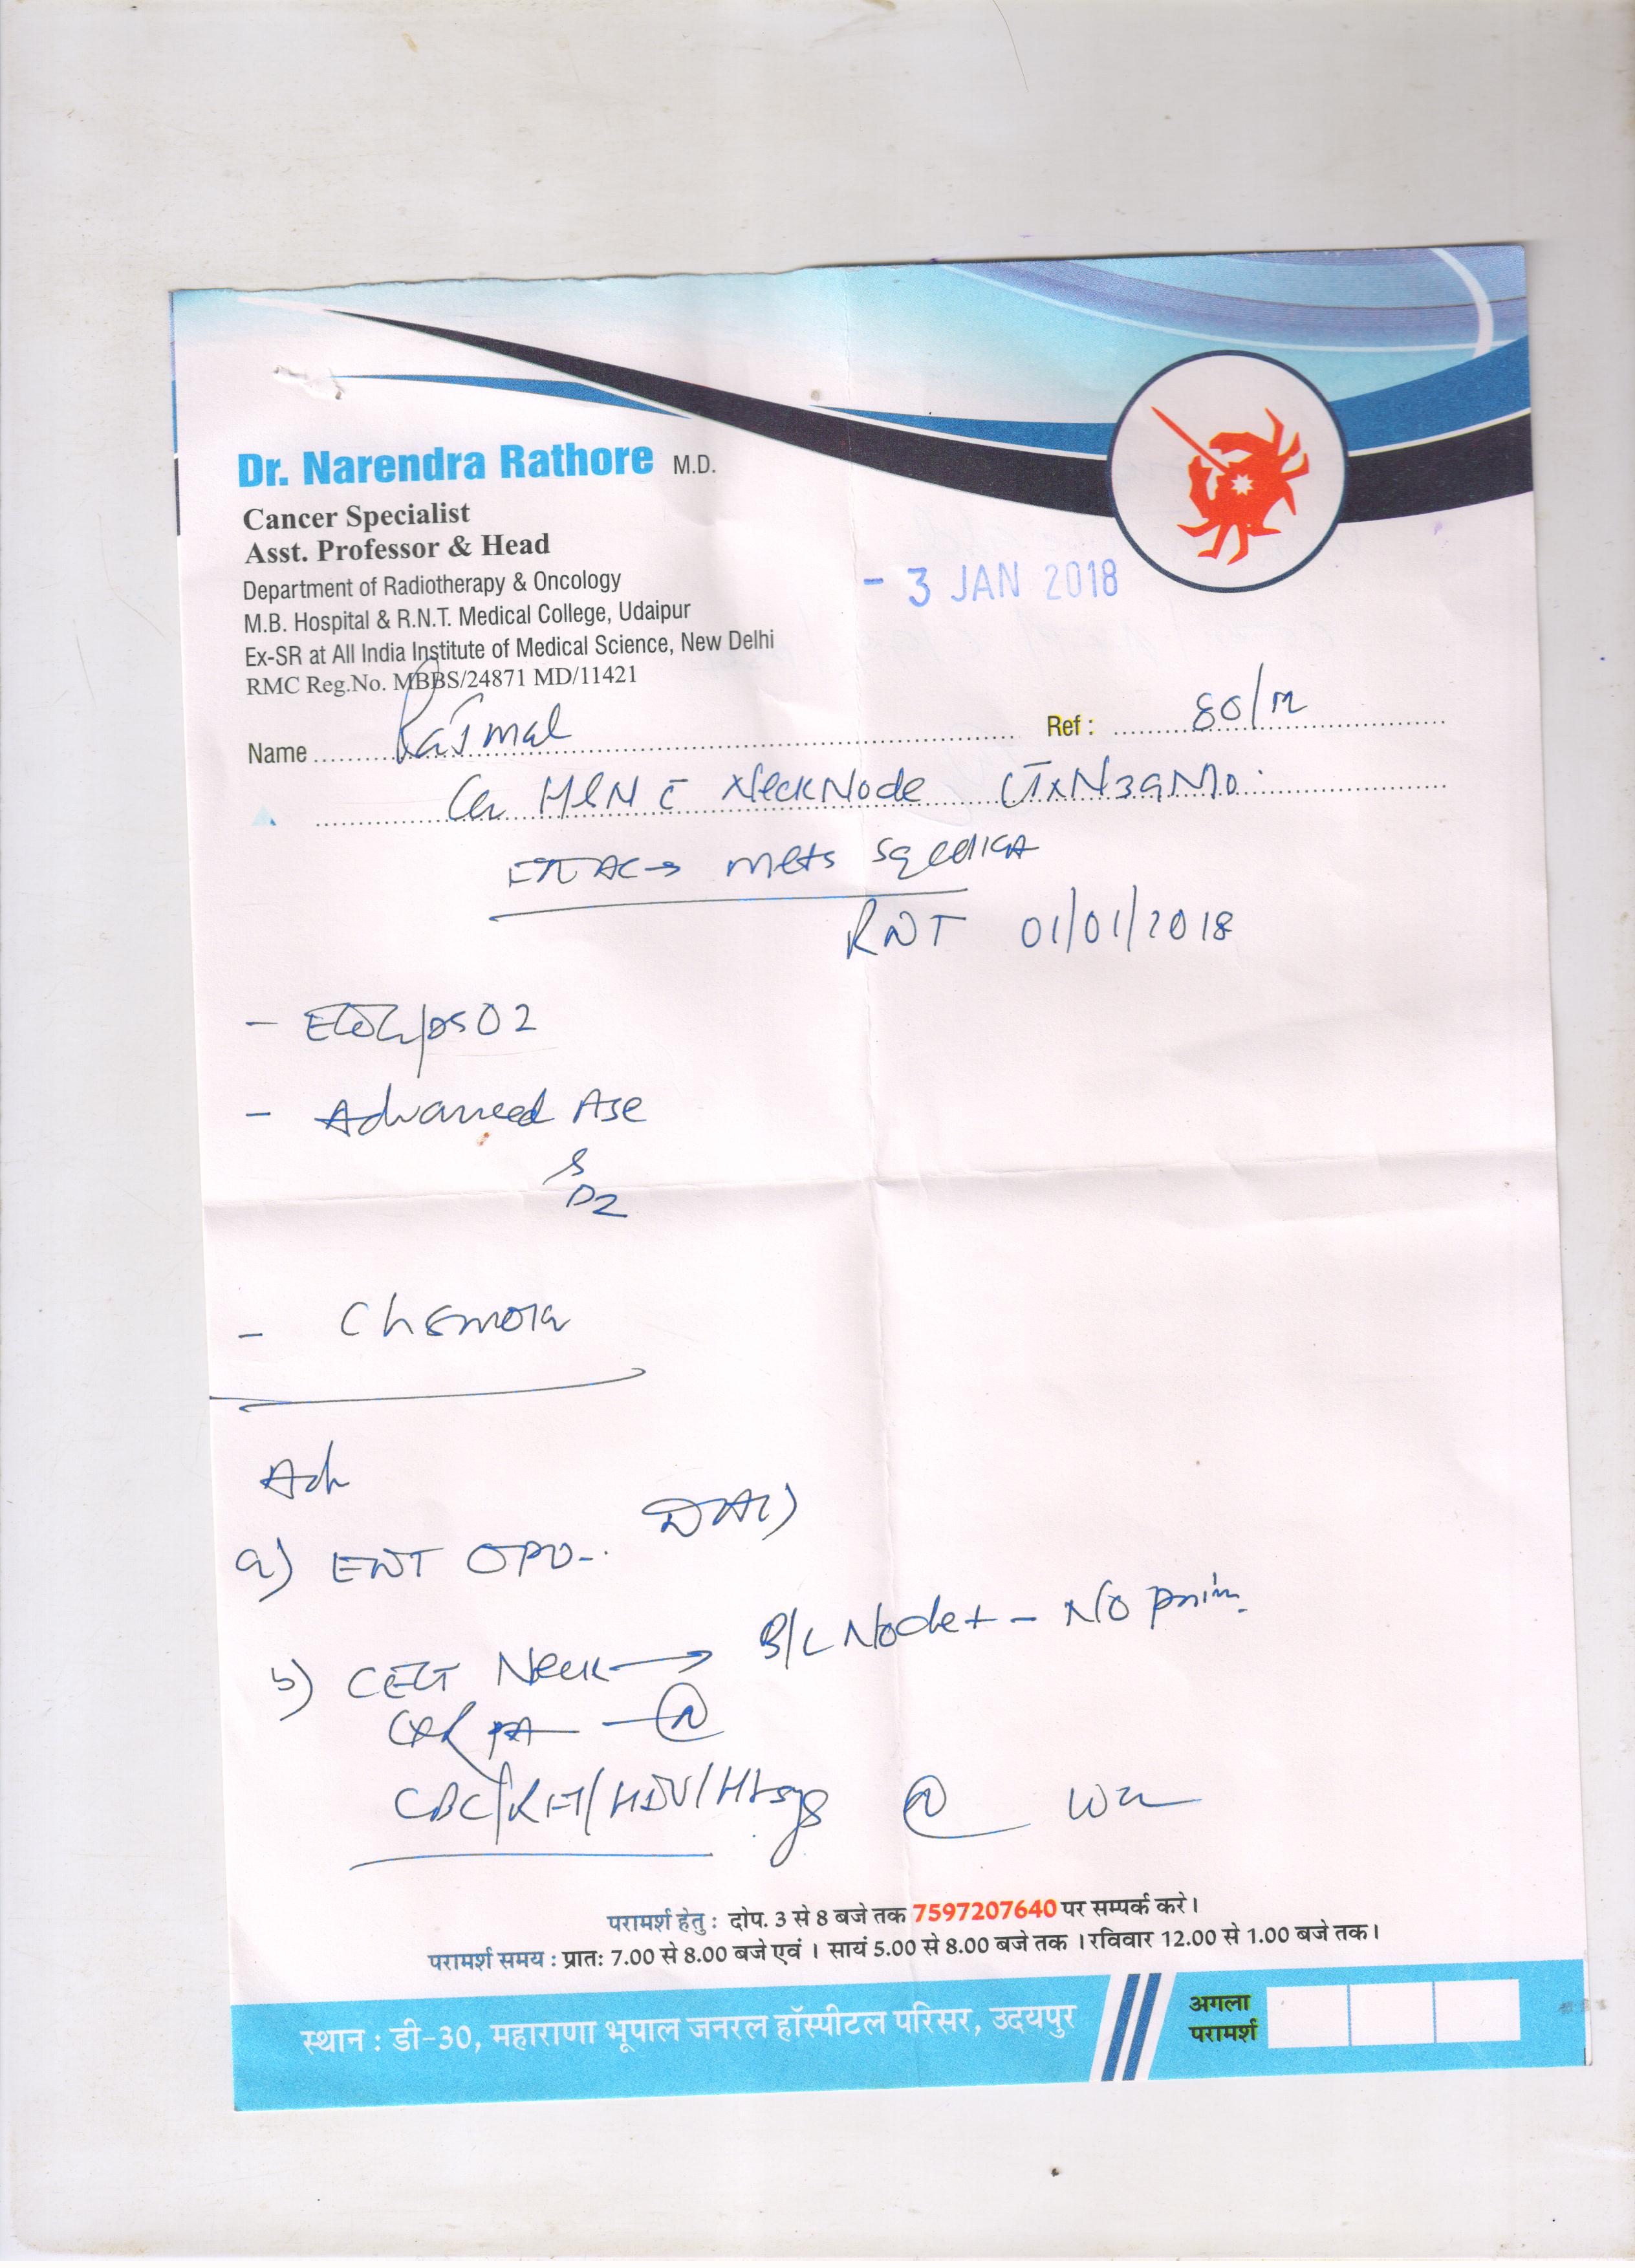 Dr. Narendra Rathore M.D.
Cancer Specialist
Asst. Professor & Head
Department of Radiotherapy & Oncology
M.B. Hospital & R.N.T. Medical College, Udaipur
Ex-SR at All India Institute of Medical Science, New Delhi
RMC Reg.No. MBBS/24871 MD/11421
- 3 JAN 2018
Name Rajmal Ref : 80/M
Ca H&N c̄ Neck Node CTxN3aM0
→ Mets Sq cell CA
RNT 01/01/2018
- ECOG/PS 02
- Advanced Age
-
Adv
a) ENT OPD
b) CECT Neck → B/L Node + - No prim.
CXR PA - (N)
CBC/RFT/HIV/HbsAg (N)
परामर्श हेतु : दोप. 3 से 8 बजे तक 7597207640 पर सम्पर्क करे।
परामर्श समय : प्रातः 7.00 से 8.00 बजे एवं । सायं 5.00 से 8.00 बजे तक । रविवार 12.00 से 1.00 बजे तक।
स्थान : डी-30, महाराणा भूपाल जनरल हॉस्पीटल परिसर, उदयपुर
अगला
परामर्श